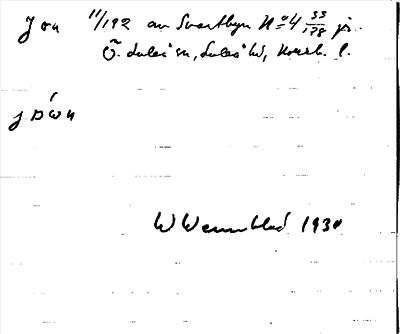 Jon 11/192 av Svartbyn Nº 4 33/128 jr.
Ö. Luleå sn, Luleå hd, Norrb. l.
W Wennblad 1930